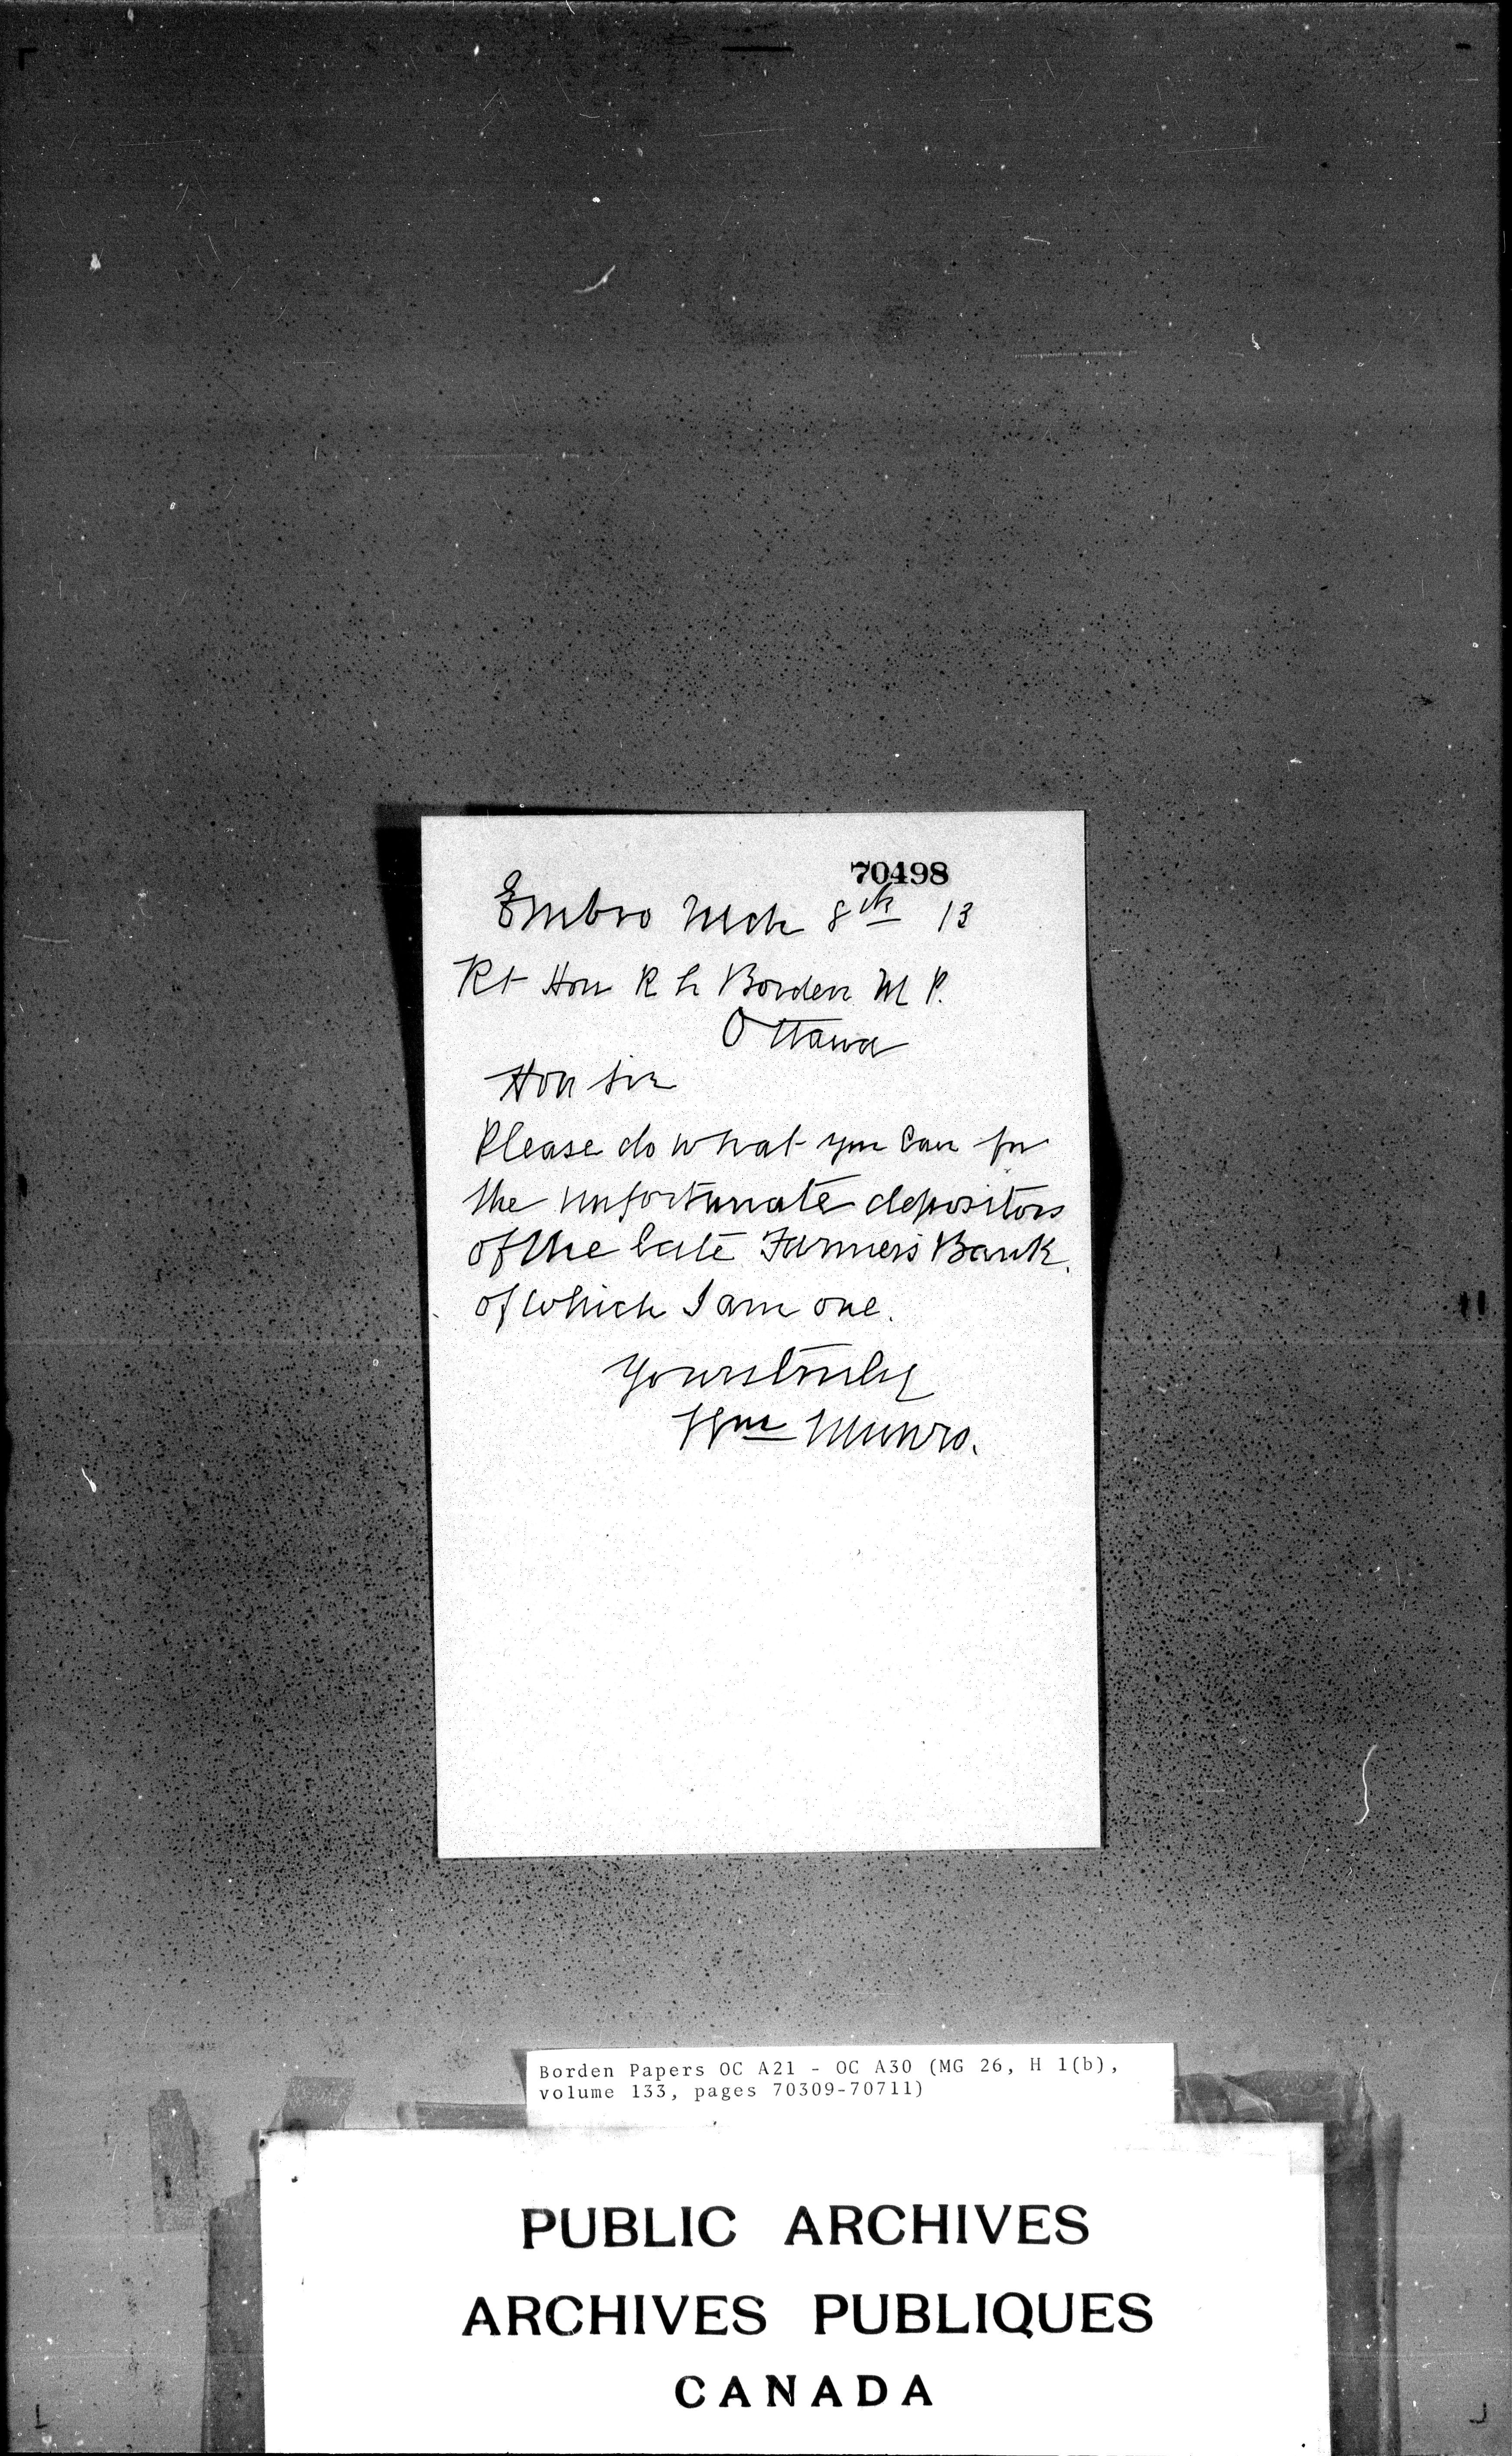 70498
Embro Mch 8th 13
Rt Hon R L Borden M P.
Ottawa
Hon Sir
Please do what you can for
the unfortunate depositors
of the late Farmers Bank.
of which I am one.
Yours truly
Wm Munro.
Borden Papers OC A21 - OC A30 (MG 26, H 1(b),
volume 133, pages 70309-70711)
PUBLIC ARCHIVES
ARCHIVES PUBLIQUES
CANADA